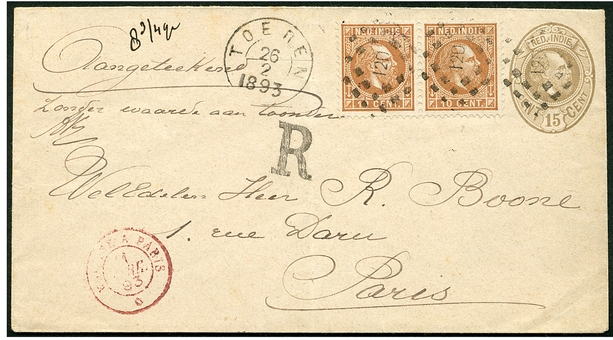 8 3/4 gr
TOEREN
26
2
1893
NED. INDIE
10 CENT.
NED. INDIE
10 CENT.
NED. INDIE
15 CENT
120
120
120
Aangeteekend
Zonder waarde aan toonder
R
WelEdelen Heer R. Boone
1. rue Daru
Paris
A PARIS
93
6